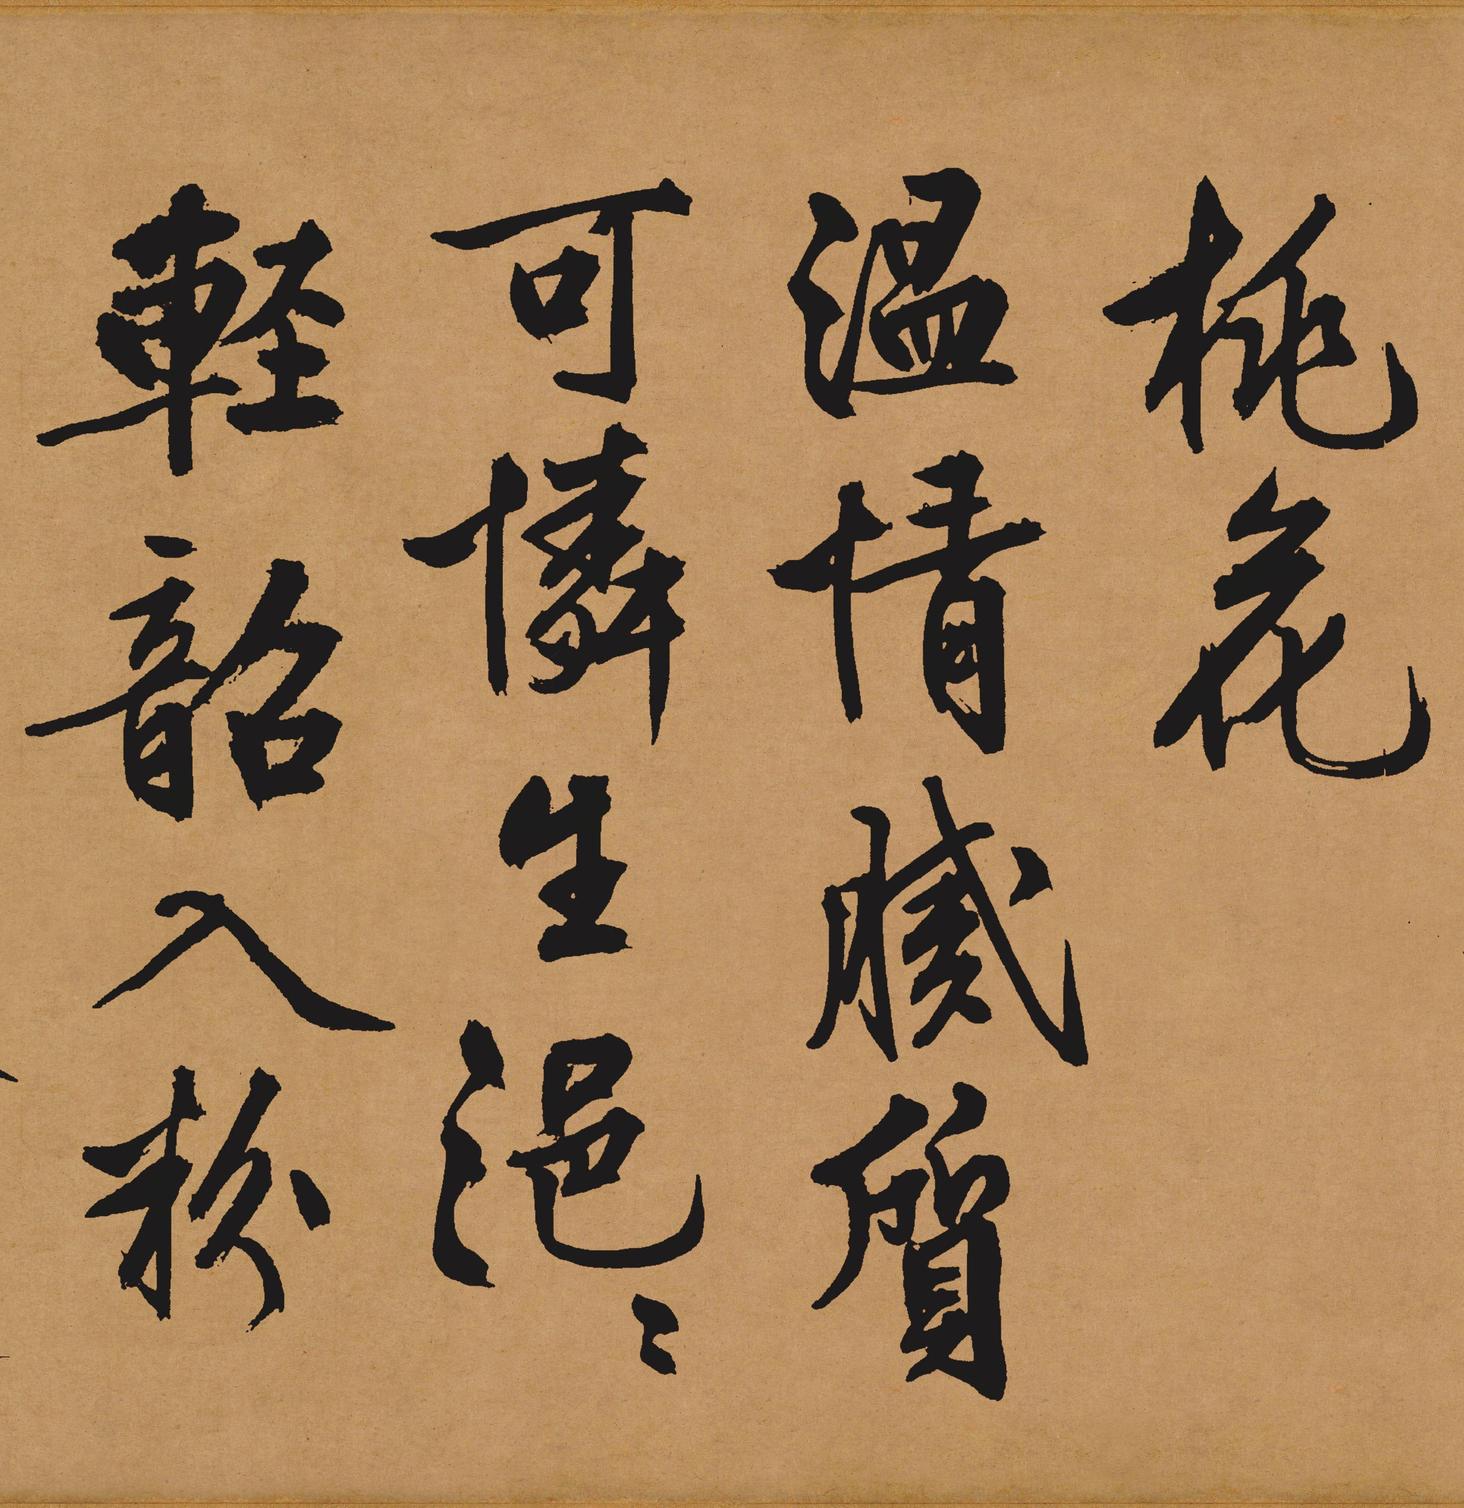 桃花
温情膩質
可憐生浥〻
輕韶入粉